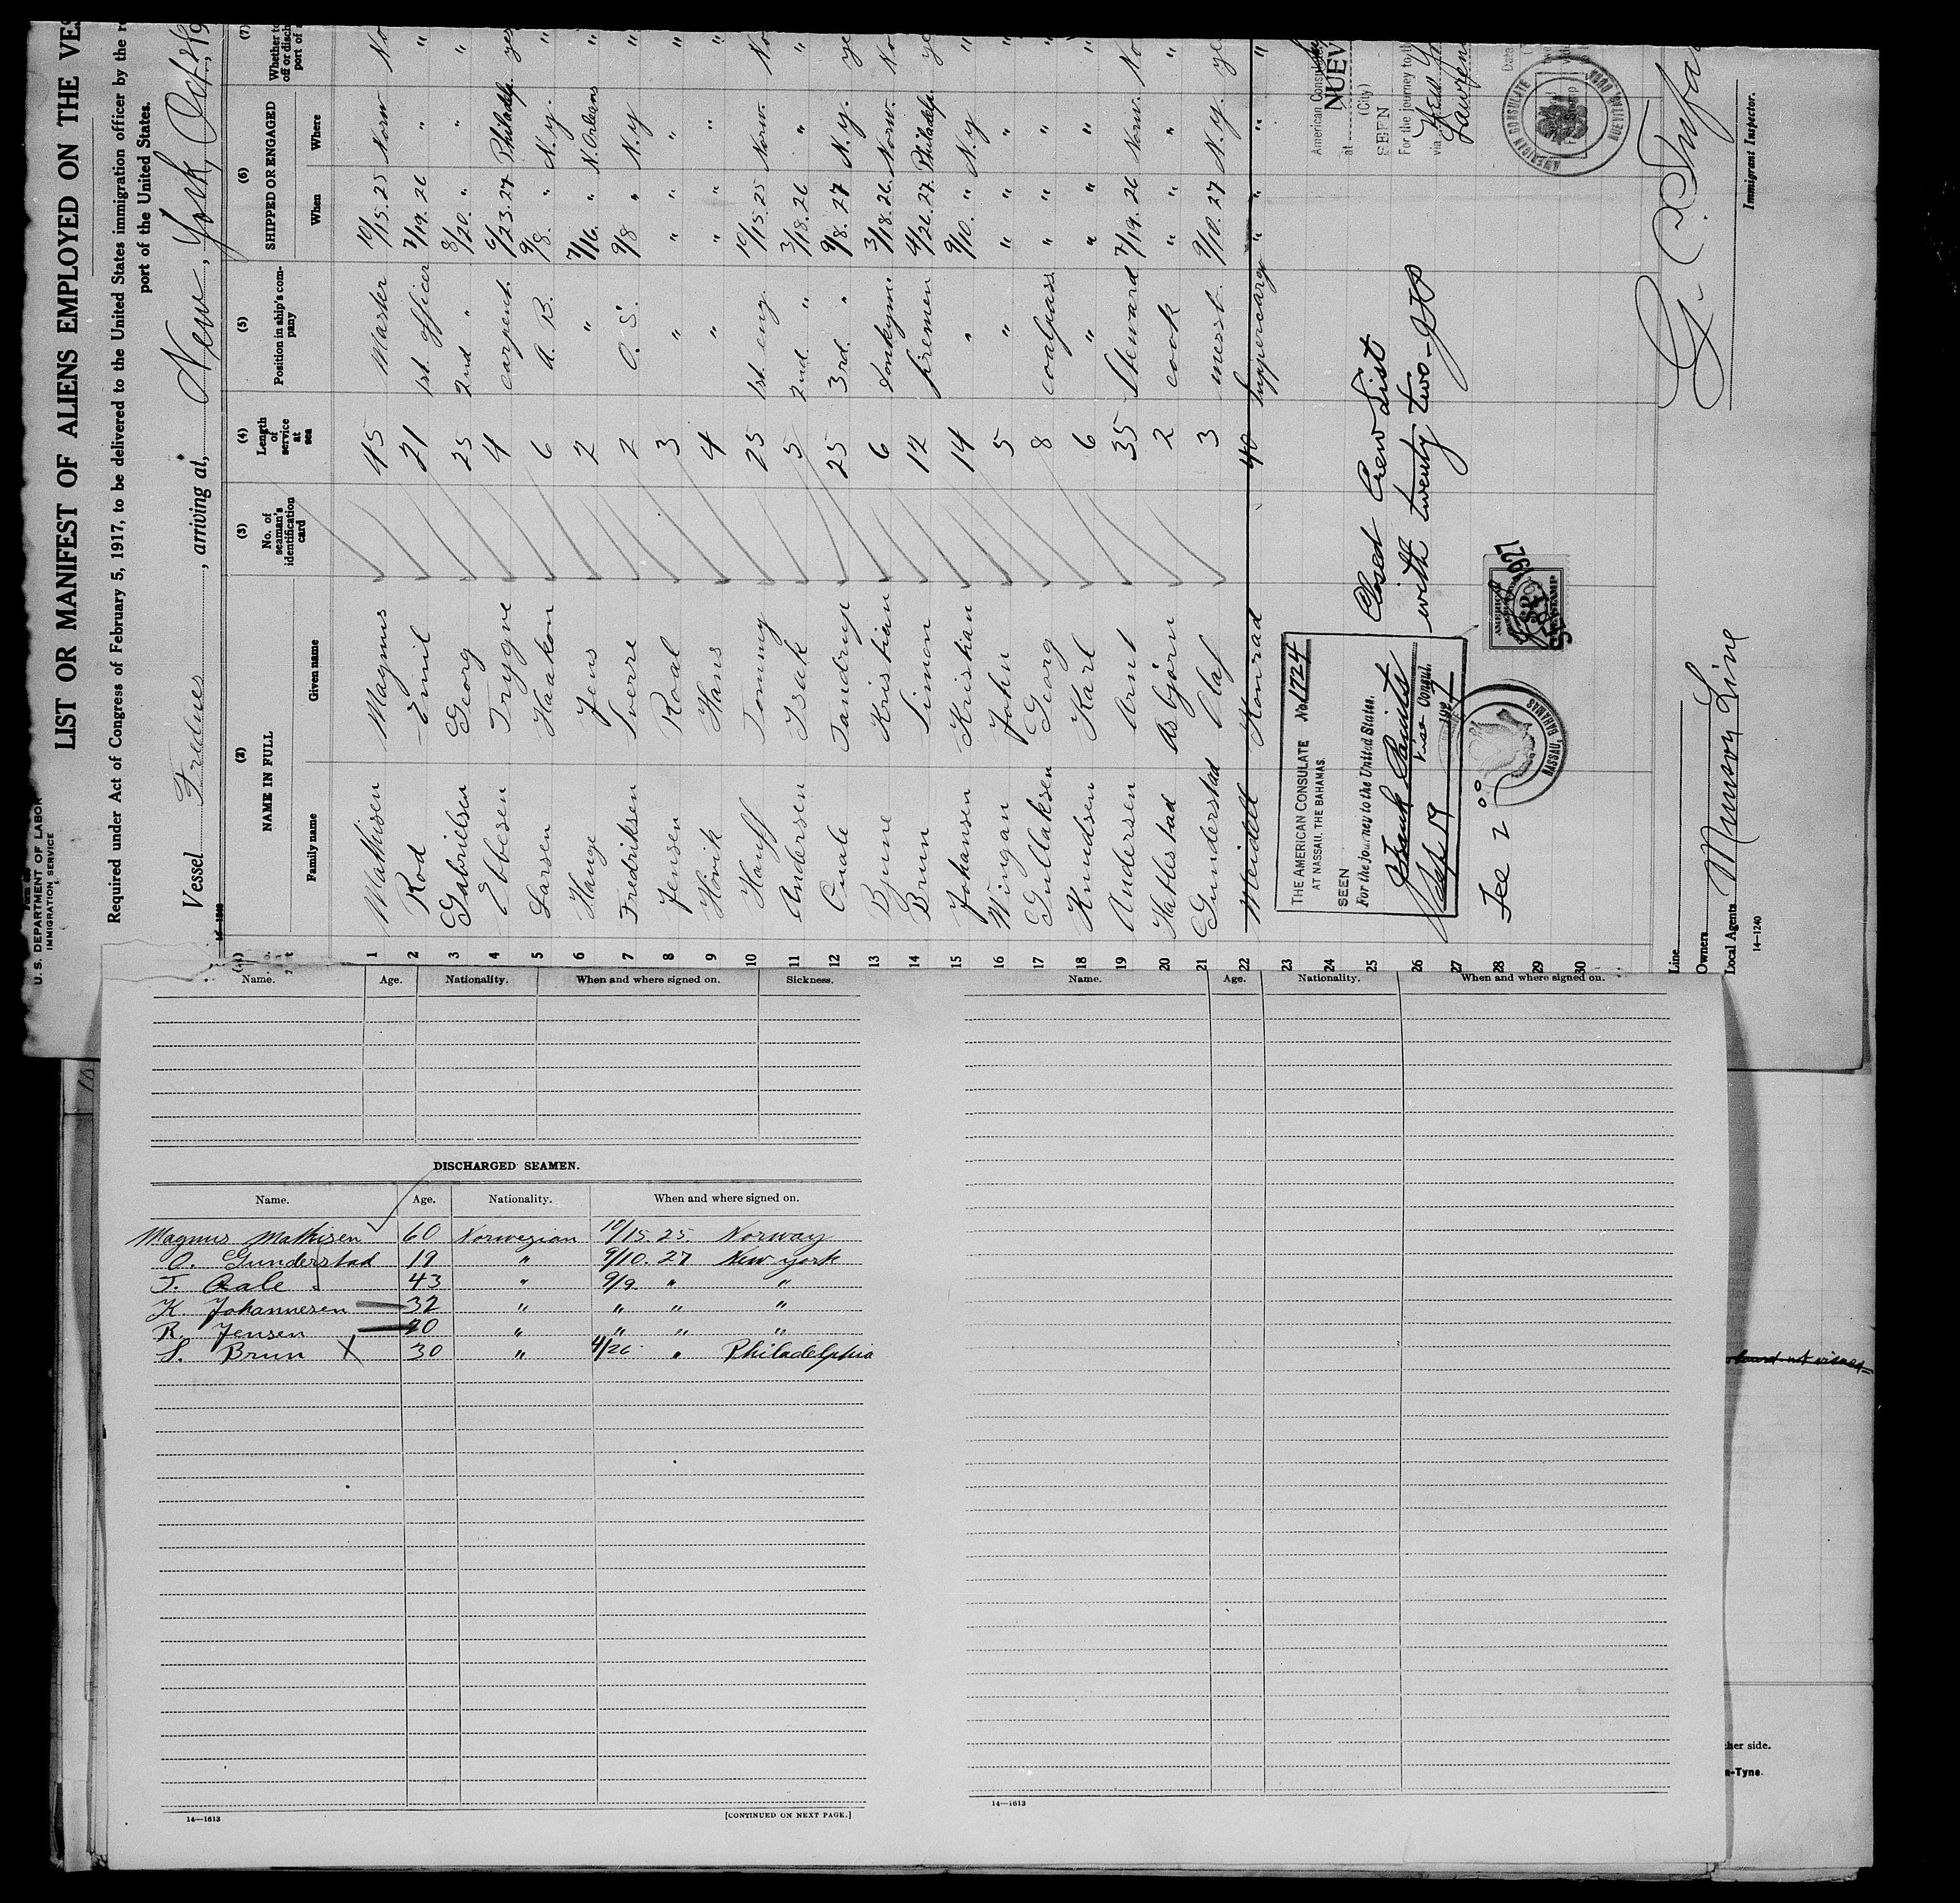 U. S. DEPARTMENT OF LABOR
IMMIGRATION SERVICE
LIST OR MANIFEST OF ALIENS EMPLOYED ON THE VES
Required under Act of Congress of February 5, 1917, to be delivered to the United States immigration officer by the r
port of the United States.
Vessel Frednes, arriving at, New York, Oct
(2) (3) (4) (5) (6) (7)
NAME IN FULL No. of seaman's identification card Length of service at sea Position in ship's company SHIPPED OR ENGAGED Whether to
off or disch
port of
Family name Given name When Where
1 Mathisen Magnus 45 Master 10/15.25 Norw No
2 Rod Emil 21 1st. officer 7/19.26 " "
3 Gabrielsen Georg 25 2nd " 8/20. " " "
4 Ebbesen Trygve 4 carpent. 6/23.27 Philadlp. yes
5 Larsen Haakon 6 A. B. 9/8. " N.y. "
6 Hauge Jens 2 " 7/16. " N. Orleans "
7 Fredriksen Sverre 2 O. S. 9/8 " N.y "
8 Jensen Roal 3 " " " "
9 Hövik Hans 4 " " " "
10 Hauff Tommy 25 1st. eng. 10/15.25 Norw. No
11 Andersen Isak 5 2nd. " 3/18.26 " "
12 Qvale Tandrup 25 3rd. " 9/8.27 N.y. ye
13 Bjune Kristian 6 Donkeym. 3/18.26. Norw. No
14 Brun Simon 12 firemen 4/26.27. Philadlp. ye
15 Johansen Kristian 14 " 9/10. " N.y "
16 Wingan John 5 " " " " "
17 Gullaksen Georg 8 coalpass " " " "
18 Knudsen Karl 6 " " " " "
19 Andersen Arnt 35 Steward 7/19.26 Norw. No
20 Hatlestad Asbjörn 2 cook " " " "
21 Gunderstad Olaf 3 messb. 9/10.27 N.y. ye
22 Meidell Konrad 40 Suppercargo " " " "
23
24
25
26
27
28
29
30
THE AMERICAN CONSULATE No 1724
AT NASSAU, THE BAHAMAS.
SEEN
For the journey to the United States.
Vice Consul.
Sept 19 1927
Fee 2 00
NASSAU, BAHAMAS
Closed Crew List
with twenty two
1927
American Consulate
at NUEV
(City)
SEEN
For the journey to th
via New Yo
Date
AMERICAN CONSULATE
Fee Stamp
Line
Owners
Local Agents Munson Line
Immigrant Inspector.
14—1240
Name. Age. Nationality. When and where signed on. Sickness.
DISCHARGED SEAMEN.
Name. Age. Nationality. When and where signed on.
Magnus Mathisen 60 Norwegian 10/15. 25. Norway
O. Gunderstad 19 " 9/10. 27 New york
T. Qale 43 " 9/9. " "
K. Johannesen 32 " " " "
R. Jensen 20 " " " "
S. Brun X 30 " 4/26 " Philadelphia
14—1613 [CONTINUED ON NEXT PAGE.]
Name. Age. Nationality. When and where signed on.
14—1613
her side.
n-Tyne.